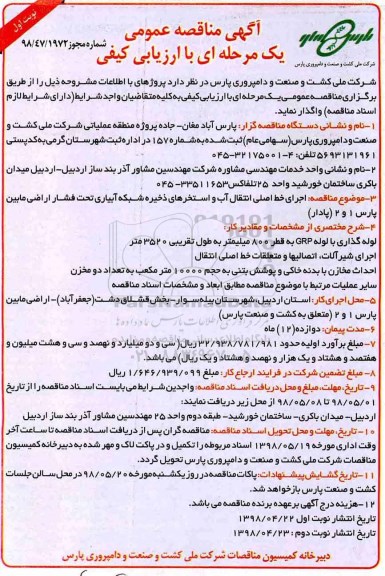 نوبت اول
آگهی مناقصه عمومی
یک مرحله ای با ارزیابی کیفی
شماره مجوز ۹۸/۴۷/۱۹۷۲
شرکت ملی کشت و صنعت و دامپروری پارس
شرکت ملی کشت و صنعت و دامپروری پارس در نظر دارد پروژهای با اطلاعات مشروحه ذیل را از طریق
برگزاری مناقصه عمومی یک مرحله ای با ارزیابی کیفی به کلیه متقاضیان واجد شرایط (دارای شرایط لازم
اسناد مناقصه) واگذار نماید.
۱-نام و نشانی دستگاه مناقصه گزار: پارس آباد مغان- جاده پروژه منطقه عملیاتی شرکت ملی کشت و
صنعت و دامپروری پارس (سهامی عام) ثبت شده به شماره ۱۵۷ در اداره ثبت شهرستان گرمی به کدپستی
۵۶۹۳۱۳۱۹۶۱ تلفن: ۴-۳۲۱۷۵۰۰۱-۰۴۵
۲-نام و نشانی واحد خدمات مهندسی مشاوره شرکت مهندسین مشاور آذر بند ساز اردبیل- اردبیل میدان
باکری ساختمان خورشید واحد ۲۵ تلفاکس ۳۳۵۱۱۶۵۳-۰۴۵
۳-موضوع مناقصه: اجرای خط اصلی انتقال آب و استخرهای ذخیره شبکه آبیاری تحت فشار اراضی مابین
پارس ۱ و ۲ (پادار)
۴-شرح مختصری از مشخصات و مقادیر کار:
لوله گذاری با لوله GRP به قطر ۸۰۰ میلیمتر به طول تقریبی ۳۵۲۰ متر
اجرای شیرآلات، اتصالیها و متعلقات خط اصلی انتقال
احداث مخازن با بدنه خاکی و پوشش بتنی به حجم ۱۰۰۰۰ متر مکعب به تعداد دو مخزن
سایر عملیات مرتبط با موضوع مناقصه مطابق ابعاد و مشخصات اسناد مناقصه
۵-محل اجرای کار: استان اردبیل، شهرستان بیله سوار- بخش قشلاق دشت (جعفرآباد)- اراضی مابین
پارس ۱ و ۲ (متعلق به کشت و صنعت پارس)
۶-مدت پیمان: دوازده (۱۲) ماه
۷-مبلغ برآورد اولیه حدود ۳۲/۹۳۸/۷۸۱/۹۸۱ ریال (سی و دو میلیارد و نهصد و سی و هشت میلیون و
هفتصد و هشتاد و یک هزار و نهصد و هشتاد و یک ریال) می باشد.
۸-مبلغ تضمین شرکت در فرایند ارجاع کار: مبلغ ۱/۶۴۶/۹۳۹/۰۹۹ ریال
۹-تاریخ، مهلت، مبلغ و محل دریافت اسناد مناقصه: واجدین شرایط می بایست اسناد مناقصه را از تاریخ
۹۸/۰۵/۰۱ تا ۹۸/۰۵/۰۸ از محل زیر دریافت نمایند:
اردبیل- میدان باکری- ساختمان خورشید- طبقه دوم واحد ۲۵ مهندسین مشاور آذر بند ساز اردبیل
۱۰-تاریخ، مهلت و محل تحویل اسناد مناقصه: مناقصه گران پس از دریافت اسناد مناقصه تا ساعت آخر
وقت اداری مورخه ۱۳۹۸/۰۵/۱۹ اسناد مربوطه را تکمیل و در پاکت لاک و مهر شده به دبیرخانه کمیسیون
مناقصات شرکت ملی کشت و صنعت و دامپروری پارس تحویل گردد.
۱۱-تاریخ گشایش پیشنهادات: پاکات مناقصه در روز یکشنبه مورخه ۹۸/۰۵/۲۰ در محل سالن جلسات
کشت و صنعت پارس بازخواهد شد.
۱۲-هزینه درج آگهی برعهده برنده مناقصه می باشد.
تاریخ انتشار نوبت اول ۱۳۹۸/۰۴/۲۲
تاریخ انتشار نوبت دوم: ۱۳۹۸/۰۴/۲۳
دبیرخانه کمیسیون مناقصات شرکت ملی کشت و صنعت و دامپروری پارس